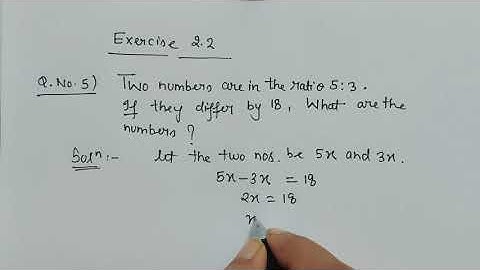 Exercise 2.2
Q.No.5) Two numbers are in the ratio 5:3.
If they differ by 18, What are the
numbers?
Solⁿ:- let the two nos. be 5x and 3x.
5x-3x = 18
2x = 18
x